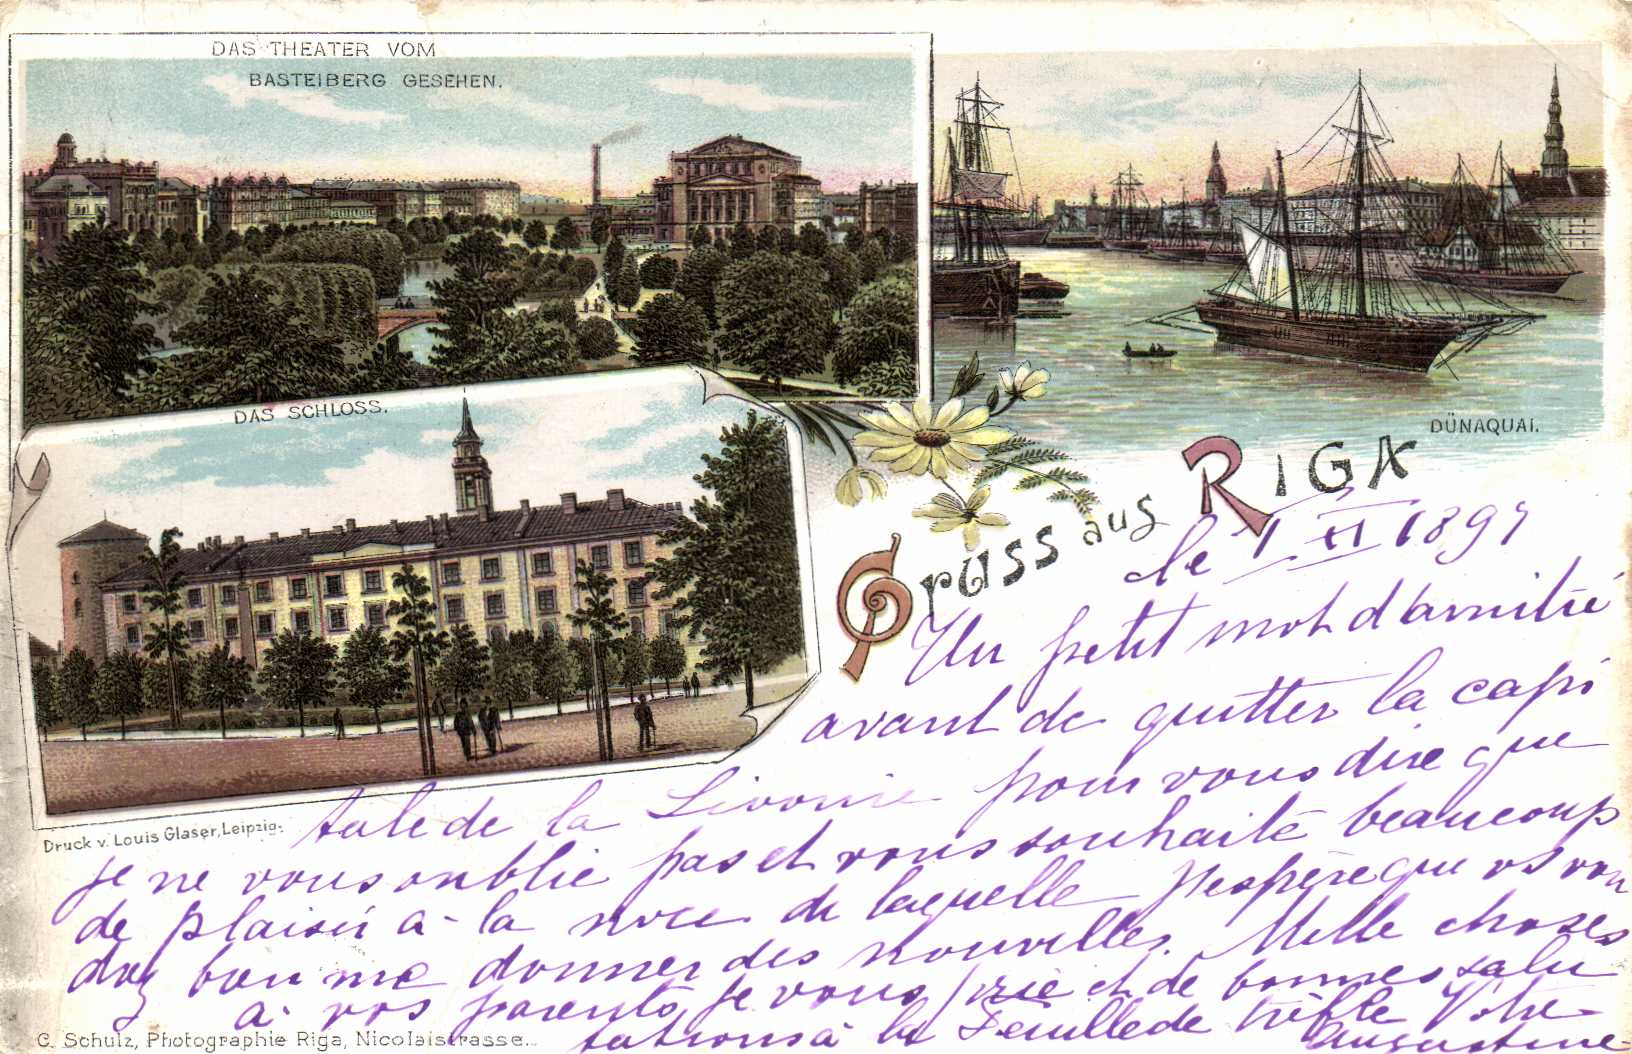 DAS THEATER VOM
BASTEIBERG GESEHEN.
DAS SCHLOSS.
DÜNAQUAI.
Gruss aus RIGA
le 1 XI 1897
Un petit mot d'amitié
avant de quitter la capi
tale de la Livonie pour vous dire que
je ne vous oublie pas et vous souhaite beaucoup
de plaisir à la noce de laquelle j'espère que vs vou
drez bien me donner des nouvelles. Mille choses
à vos parents je vous prie et de bonnes salu
tations à la Feuille de trèfle Votre
Augustine
Druck v. Louis Glaser, Leipzig.
C. Schulz, Photographie Riga, Nicolaistrasse.